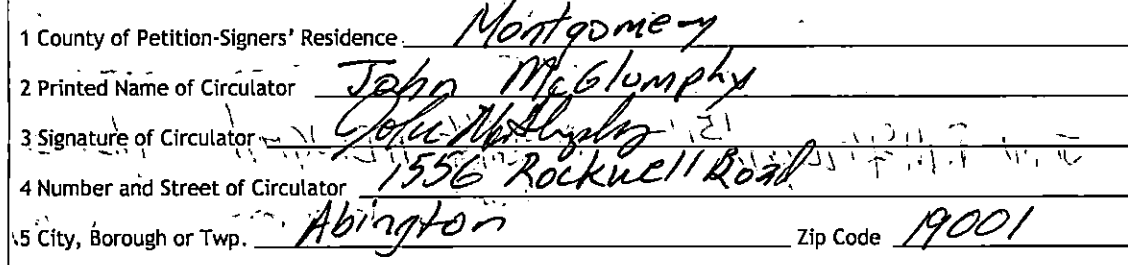 1 County of Petition-Signers' Residence Montgomery
2 Printed Name of Circulator John McGlumphy
3 Signature of Circulator John McGlumphy
4 Number and Street of Circulator 1556 Rockwell Road
5 City, Borough or Twp. Abington Zip Code 19001